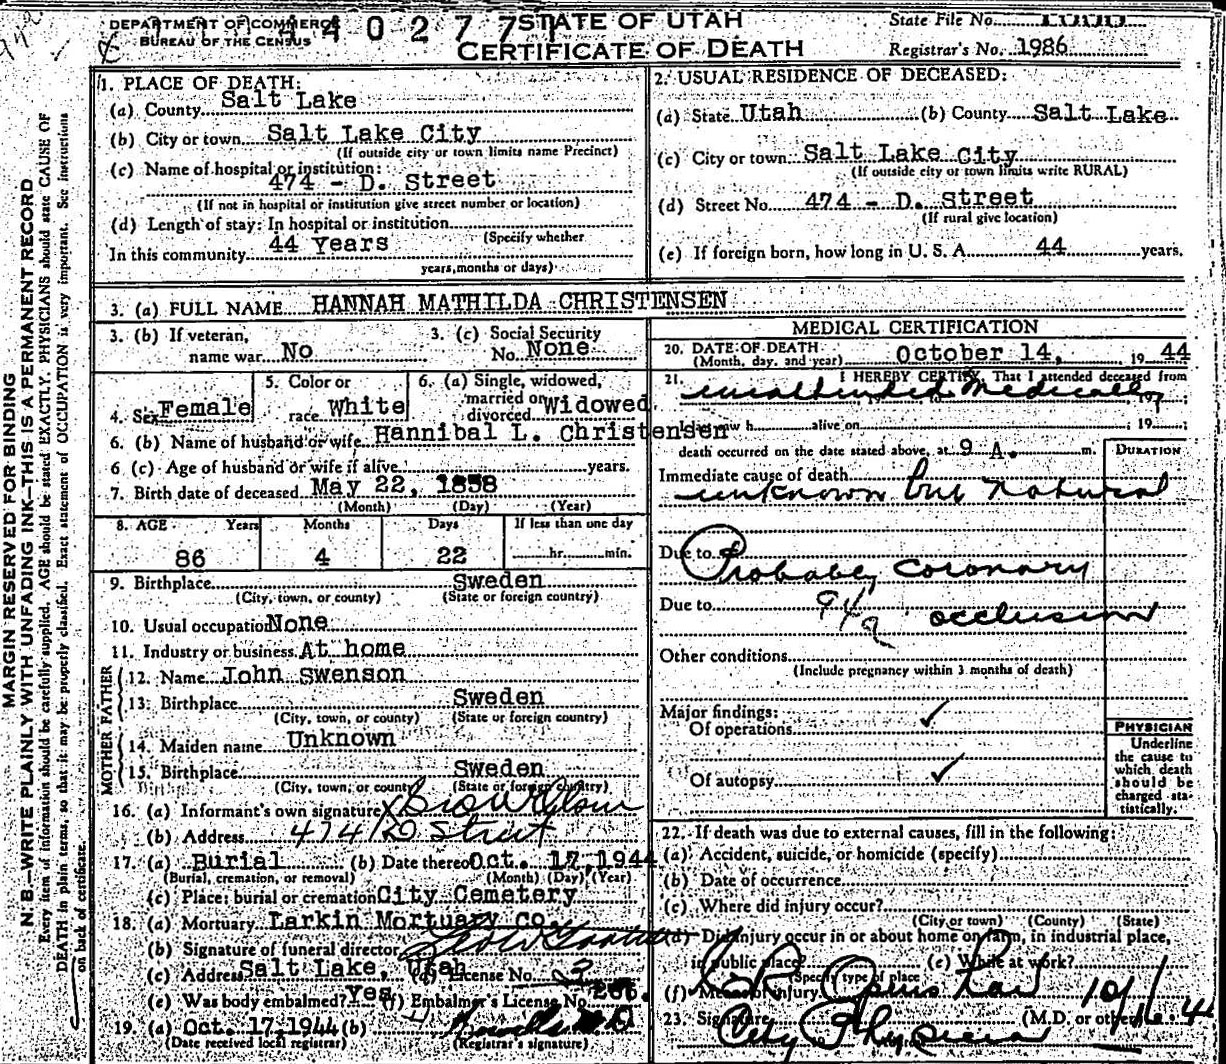 DEPARTMENT OF COMMERCE
BUREAU OF THE CENSUS
STATE OF UTAH
CERTIFICATE OF DEATH
State File No.
Registrar's No. 1986
MARGIN RESERVED FOR BINDING
N. B.—WRITE PLAINLY WITH UNFADING INK—THIS IS A PERMANENT RECORD
Every item of information should be carefully supplied. AGE should be stated EXACTLY. PHYSICIANS should state CAUSE OF
DEATH in plain terms, so that it may be properly classified. Exact statement of OCCUPATION is very important. See instructions
on back of certificate.
1. PLACE OF DEATH:
(a) County Salt Lake
(b) City or town Salt Lake City
(If outside city or town limits name Precinct)
(c) Name of hospital or institution:
474 - D. Street
(If not in hospital or institution give street number or location)
(d) Length of stay: In hospital or institution
(Specify whether
In this community 44 Years
years, months or days)
2. USUAL RESIDENCE OF DECEASED:
(a) State Utah (b) County Salt Lake
(c) City or town Salt Lake City
(If outside city or town limits write RURAL)
(d) Street No. 474 - D. Street
(If rural give location)
(e) If foreign born, how long in U. S. A. 44 years.
3. (a) FULL NAME HANNAH MATHILDA CHRISTENSEN
3. (b) If veteran,
name war No
3. (c) Social Security
No. None
4. Sex Female
5. Color or
race White
6. (a) Single, widowed,
married or
divorced Widowed
6. (b) Name of husband or wife Hannibal L. Christensen
6 (c) Age of husband or wife if alive years.
7. Birth date of deceased May 22, 1858
(Month) (Day) (Year)
8. AGE Years Months Days If less than one day
86 4 22 hr. min.
9. Birthplace Sweden
(City, town, or county) (State or foreign country)
10. Usual occupation None
11. Industry or business At home
FATHER
12. Name John Swenson
13. Birthplace Sweden
(City, town, or county) (State or foreign country)
MOTHER
14. Maiden name Unknown
15. Birthplace Sweden
(City, town, or county) (State or foreign country)
16. (a) Informant's own signature
(b) Address 474 D Street
17. (a) Burial (b) Date thereof Oct. 17, 1944
(Burial, cremation, or removal) (Month) (Day) (Year)
(c) Place: burial or cremation City Cemetery
18. (a) Mortuary Larkin Mortuary Co.
(b) Signature of funeral director
(c) Address Salt Lake, Utah (d) License No.
(e) Was body embalmed? Yes (f) Embalmer's License No.
19. (a) Oct. 17, 1944 (b)
(Date received local registrar) (Registrar's signature)
MEDICAL CERTIFICATION
20. DATE OF DEATH
(Month, day, and year) October 14, 19 44
21. I HEREBY CERTIFY, That I attended deceased from
unattended Medically
I last saw h alive on ; 19 ;
death occurred on the date stated above, at 9 A. m.
DURATION
Immediate cause of death
unknown but natural
Due to Probably coronary
Due to 94a occlusion
Other conditions
(Include pregnancy within 3 months of death)
Major findings:
Of operations ✓
Of autopsy ✓
PHYSICIAN
Underline
the cause to
which death
should be
charged sta-
tistically.
22. If death was due to external causes, fill in the following:
(a) Accident, suicide, or homicide (specify)
(b) Date of occurrence
(c) Where did injury occur?
(City or town) (County) (State)
(d) Did injury occur in or about home on farm, in industrial place,
in public place? (e) While at work?
(Specify type of place)
(f) Means of injury
23. Signature (M.D. or other)
City Physician